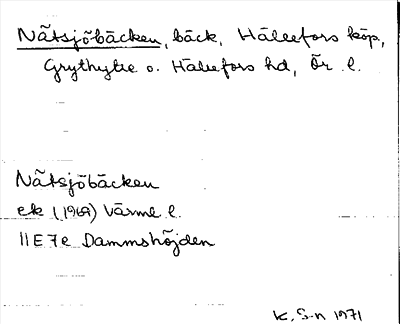 Nätsjöbäcken, bäck, Hällefors köp,
Grythytte o. Hällefors hd, Ör. l.
Nätsjöbäcken
ek (1969) Värml l.
11E7e Dammshöjden
K. S-n 1971